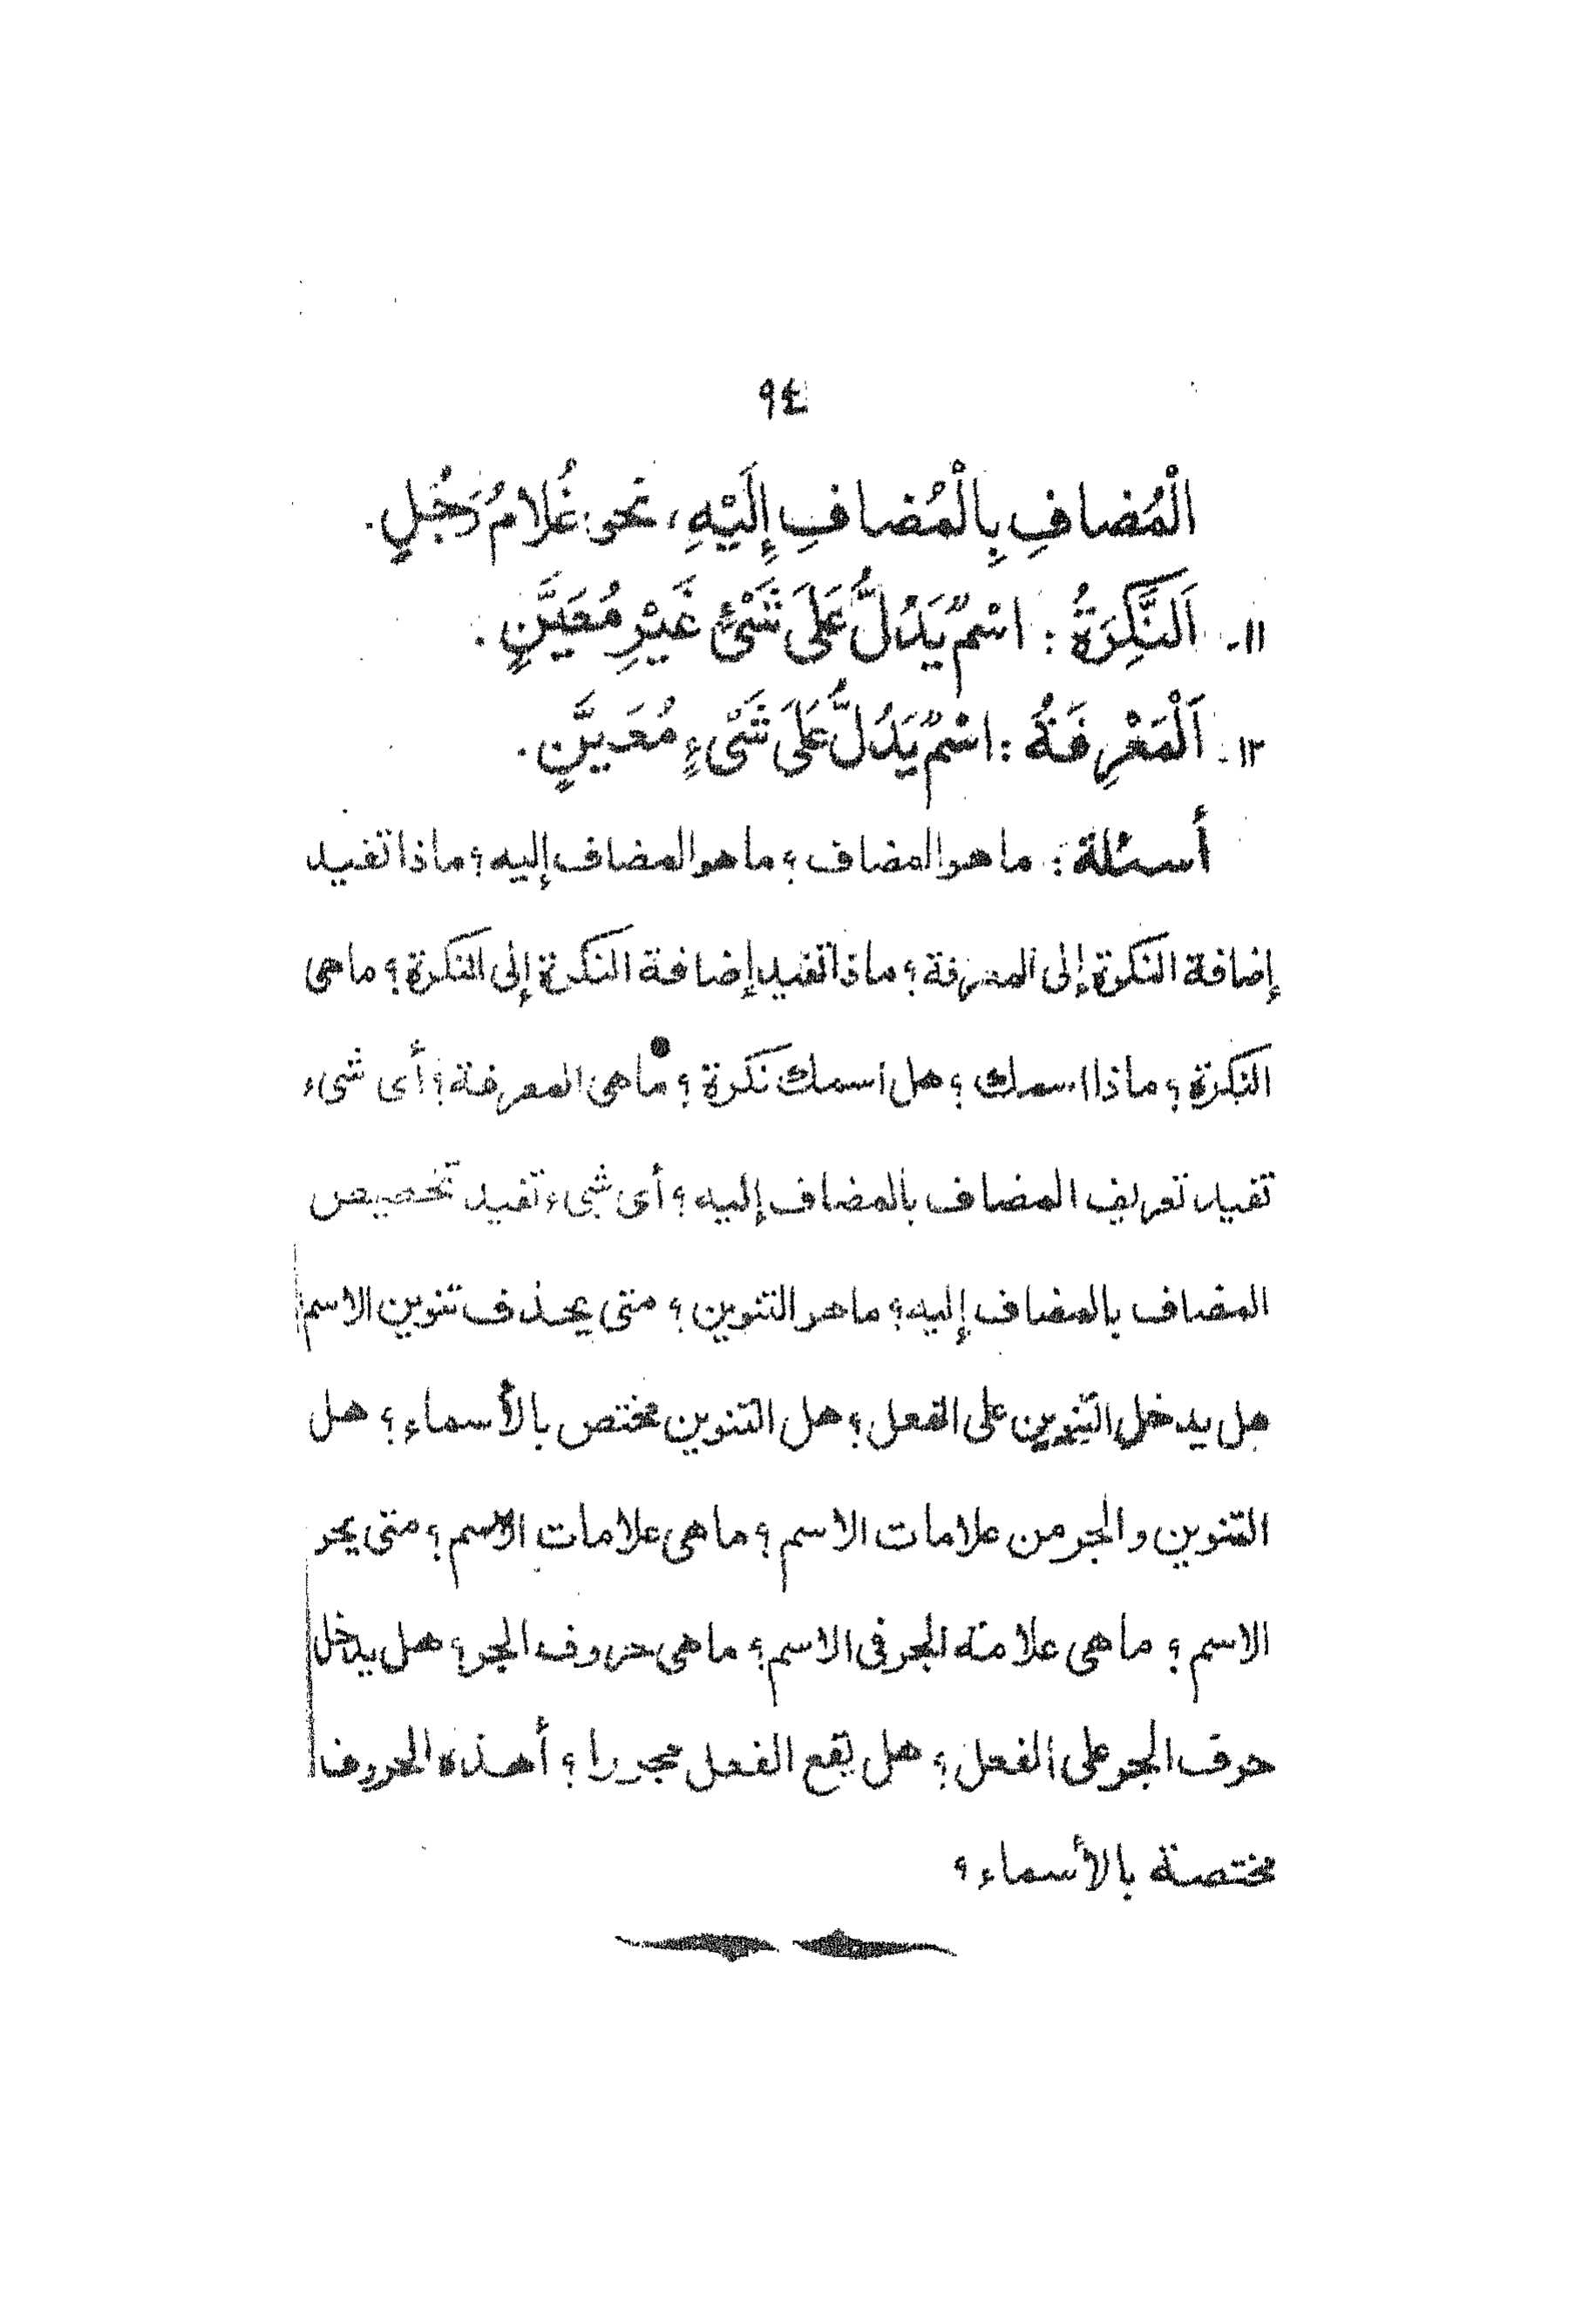 ٩٤
الْمُضافِ بِالْمُضافِ إِلَيْهِ، نحو: غُلامُ رَجُلٍ.
١١- اَلنَّكِرَةُ : اسْمٌ يَدُلُّ عَلَى شَىْءٍ غَيْرِ مُعَيَّنٍ.
١٢- اَلْمَعْرِفَةُ : اسْمٌ يَدُلُّ عَلَى شَىْءٍ مُعَيَّنٍ.
أسئلة : ما هو المضاف ؟ ما هو المضاف إليه ؟ ماذا تفيد
إضافة النكرة إلى المعرفة ؟ ماذا تفيد إضافة النكرة إلى النكرة ؟ ما هى
النكرة ؟ ماذا اسمك ؟ هل اسمك نكرة ؟ ما هى المعرفة ؟ أى شىء
تفيد تعريف المضاف بالمضاف إليه ؟ أى شىء تفيد تخصيص
المضاف بالمضاف إليه ؟ ما هو التنوين ؟ متى يحذف تنوين الاسم
هل يدخل التنوين على الفعل ؟ هل التنوين مختص بالأسماء ؟ هل
التنوين والجر من علامات الاسم ؟ ما هى علامات الاسم ؟ متى يجر
الاسم ؟ ما هى علامة الجر فى الاسم ؟ ما هى حروف الجر ؟ هل يدخل
حرف الجر على الفعل ؟ هل يقع الفعل مجرورا ؟ أهذه الحروف
مختصة بالأسماء ؟